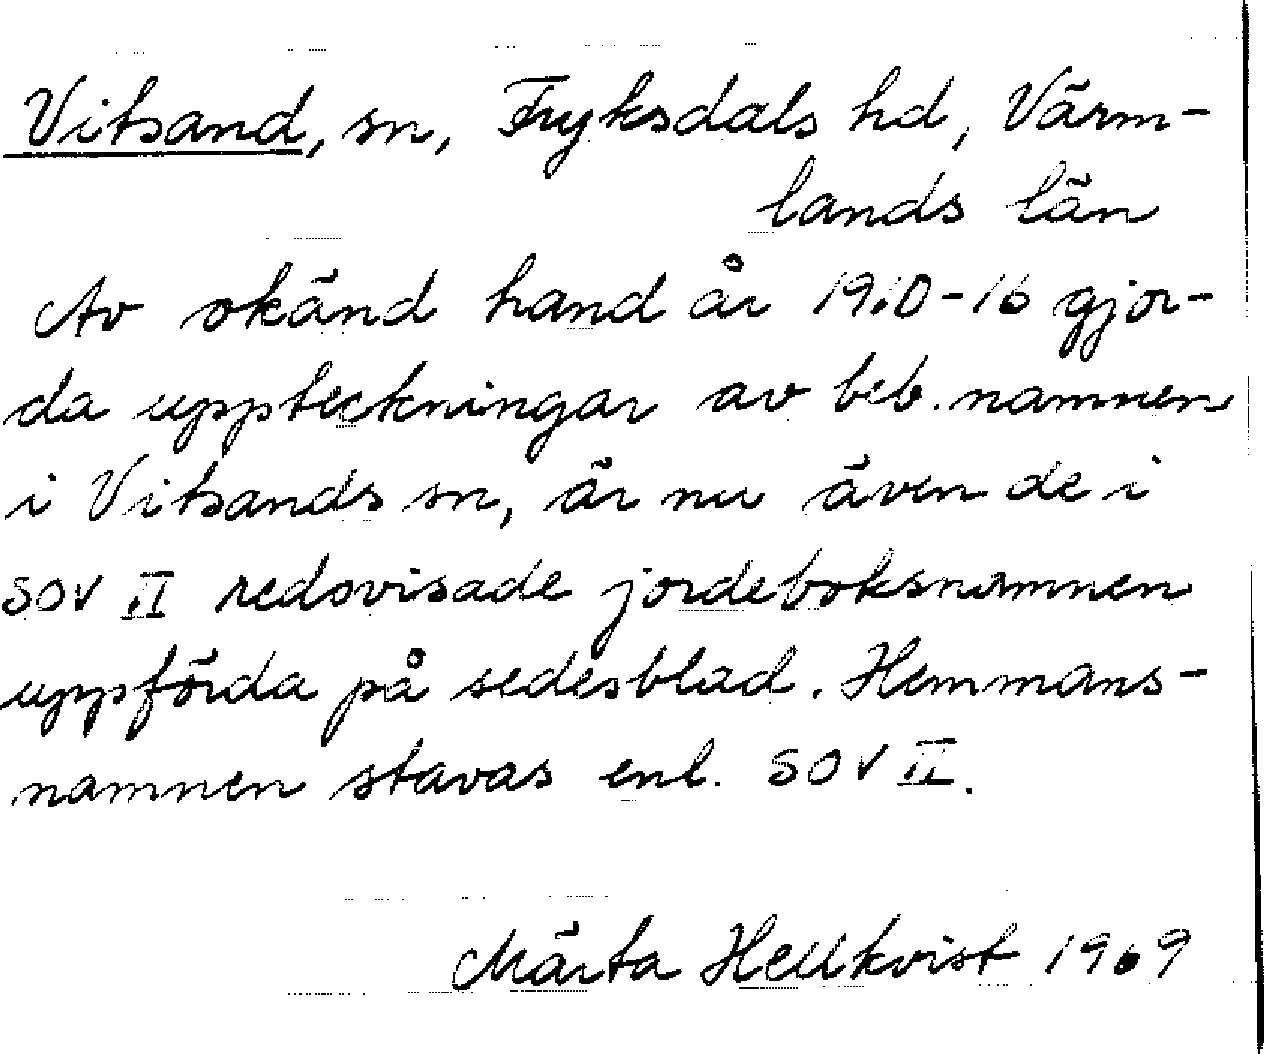 Vitsand, sn, Fryksdals hd, Värm-
lands län
Av okänd hand år 1910-16 gjor-
da uppteckningar av beb. namnen
i Vitsands sn, är nu även de i
SOV II redovisade jordeboksnamnen
uppförda på sedesblad. Hemmans-
namnen stavas enl. SOV II.
Märta Hellkvist 1969